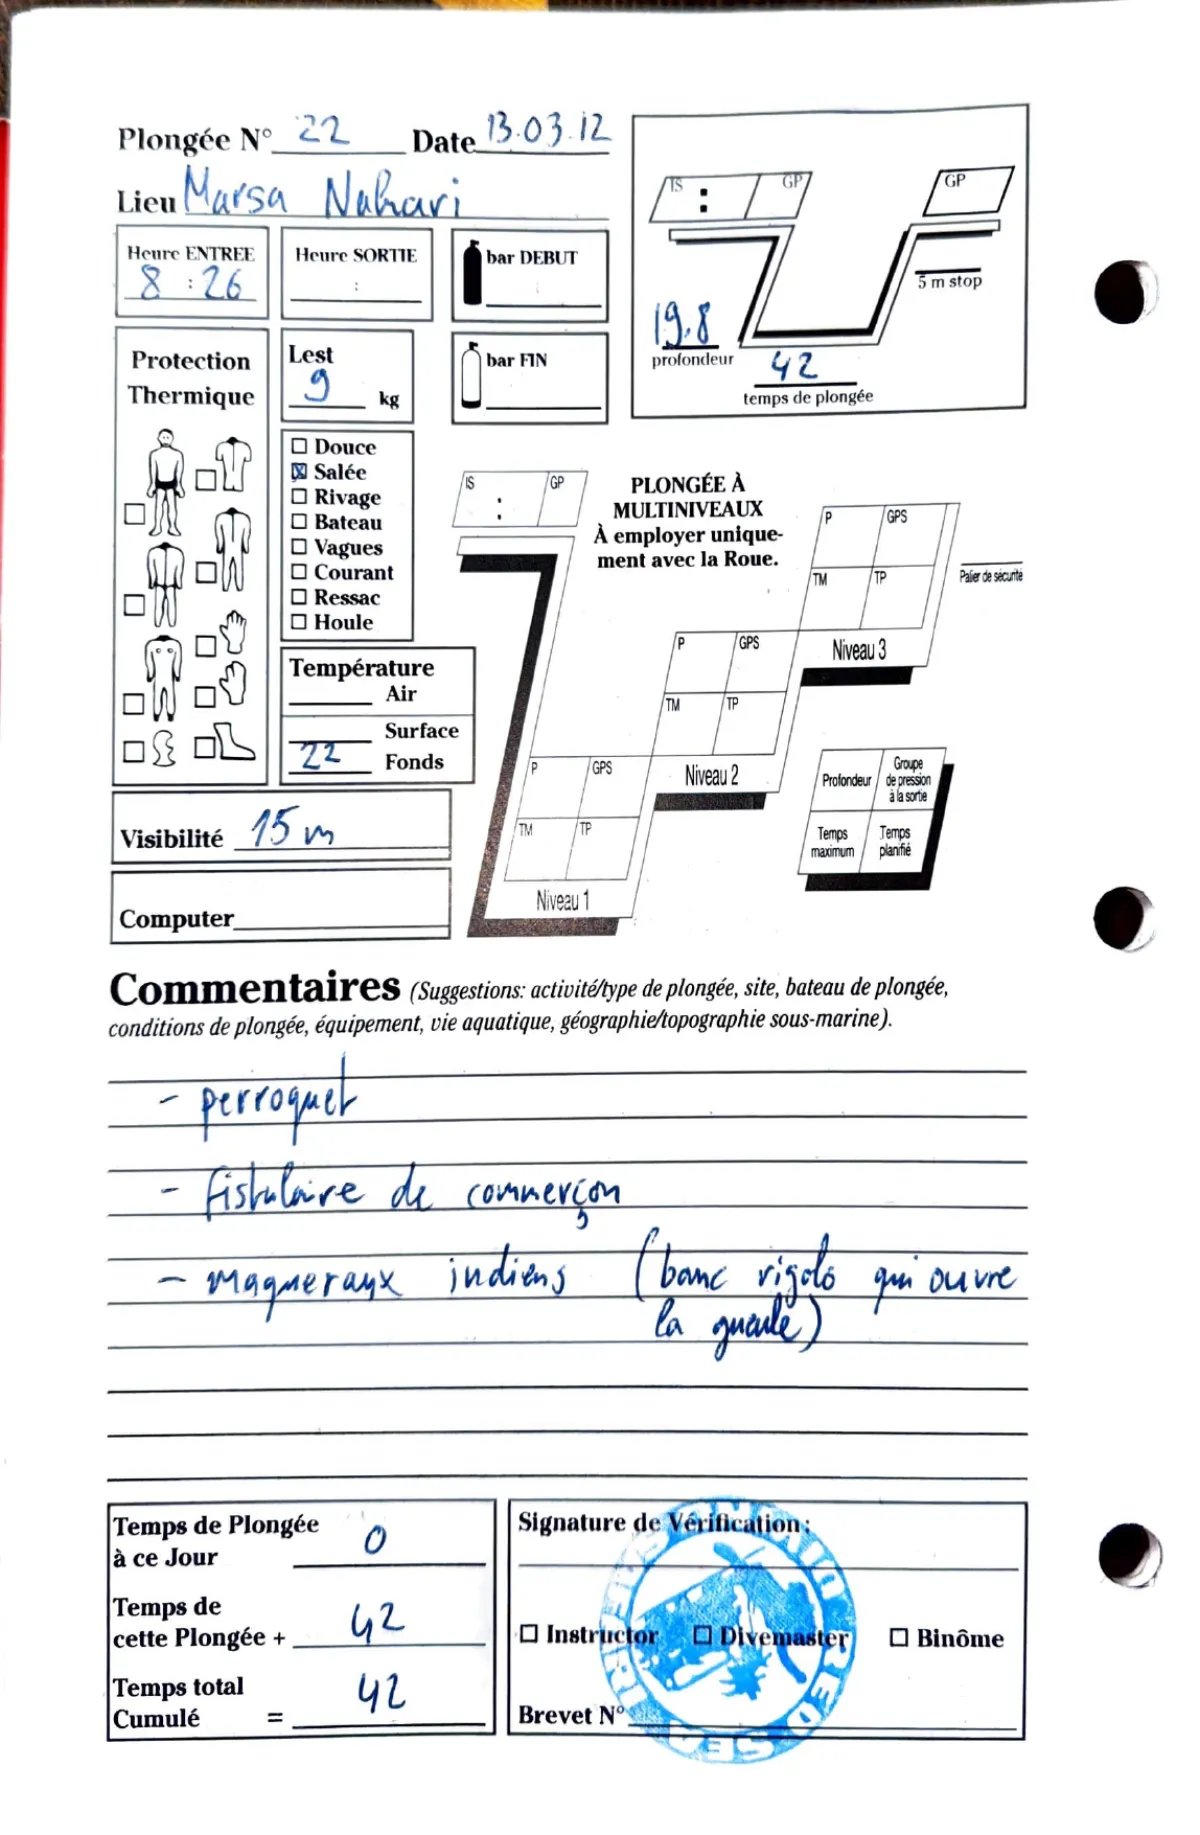 Plongée N° 22 Date 13.03.12
Lieu Marsa Nahari
Heure ENTREE
8 : 26
Heure SORTIE
:
bar DEBUT
bar FIN
IS : GP
GP
5 m stop
19.8
profondeur
42
temps de plongée
Protection
Thermique
Lest
9 kg
☐ Douce
☒ Salée
☐ Rivage
☐ Bateau
☐ Vagues
☐ Courant
☐ Ressac
☐ Houle
Température
Air
Surface
22 Fonds
Visibilité 15 m
Computer
IS : GP
PLONGÉE À
MULTINIVEAUX
À employer unique-
ment avec la Roue.
P GPS
TM TP
Niveau 1
P GPS
TM TP
Niveau 2
P GPS
TM TP
Niveau 3
Palier de sécurité
Profondeur
Groupe
de pression
à la sortie
Temps
maximum
Temps
planifié
Commentaires (Suggestions: activité/type de plongée, site, bateau de plongée,
conditions de plongée, équipement, vie aquatique, géographie/topographie sous-marine).
- perroquet
- fistulaire de commerçon
- maqueraux indiens (banc rigolo qui ouvre
la gueule)
Temps de Plongée
à ce Jour 0
Temps de
cette Plongée + 42
Temps total
Cumulé = 42
Signature de Vérification:
☐ Instructor ☐ Divemaster ☐ Binôme
Brevet N°
RED SEA